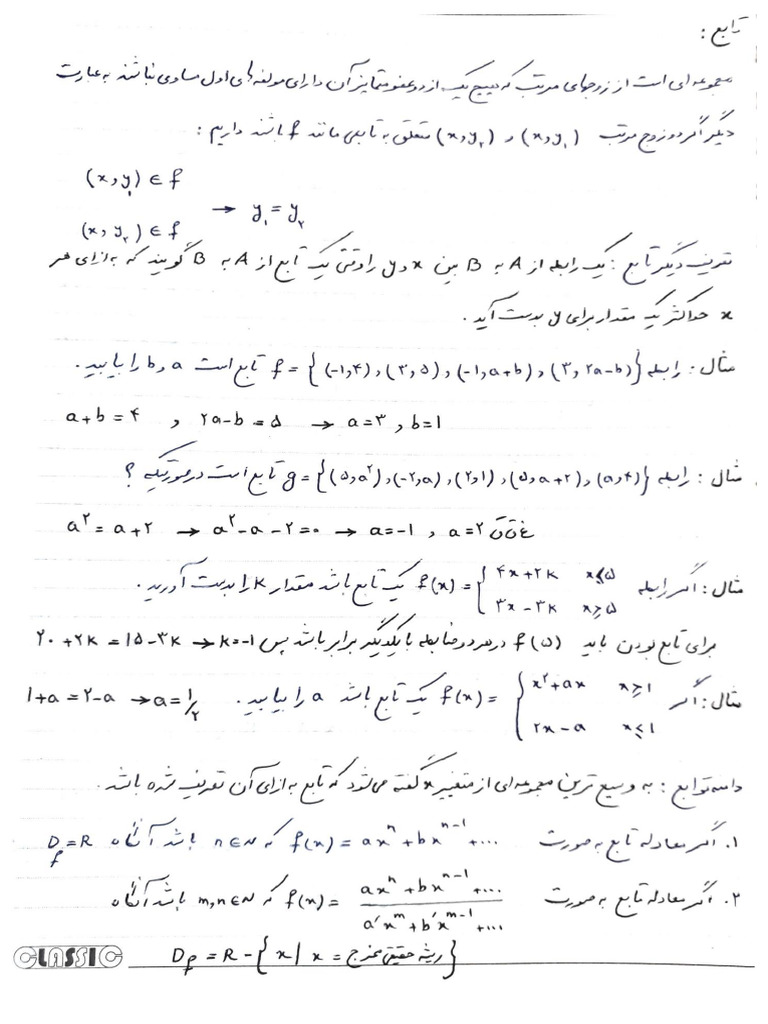 تابع :
مجموعه ای است از زوجهای مرتب که هیچ یک از دو عضو متمایز آن دارای مولفه های اول مساوی نباشند به عبارت
دیگر اگر دو زوج مرتب (x,y₁) و (x,y₂) متعلق به تابعی مانند f باشند داریم :
(x,y₁) ∈ f
→ y₁ = y₂
(x,y₂) ∈ f
تعریف دیگر تابع : یک رابطه از A به B بین x و y را وقتی یک تابع از A به B گویند که به ازای هر
x حداکثر یک مقدار برای y بدست آید .
مثال : رابطه f = {(-۱,۴) , (۳,۵) , (-۱,a+b) , (۳, ۲a-b)} تابع است a و b را بیابید .
a+b = ۴ , ۲a-b = ۵ → a=۳ , b=۱
مثال : رابطه g = {(۵,a²) , (-۲,a) , (۲,۱) , (۵,a+۲) , (a,۴)} تابع است در صورتیکه ؟
a² = a+۲ → a²-a-۲=۰ → a=-۱ , a=۲ غ ق ق
مثال : اگر رابطه f(x) = { ۴x+۲k x≤۵
۳x-۳k x≥۵ یک تابع باشد مقدار k را بدست آورید .
برای تابع بودن باید f(۵) در هر دو ضابطه با یکدیگر برابر باشد پس ۲۰+۲k = ۱۵-۳k → k=-۱
مثال : اگر f(x) = { x²+ax x≥۱
۲x-a x≤۱ یک تابع باشد a را بیابید . ۱+a = ۲-a → a = ۱/۲
دامنه توابع : به وسیع ترین مجموعه ای از متغییر x گفته می شود که تابع به ازای آن تعریف شده باشد .
۱. اگر معادله تابع به صورت f(x) = axⁿ+bxⁿ⁻¹+... که n∈N باشد آنگاه D_f = R
۲. اگر معادله تابع به صورت f(x) = (axⁿ+bxⁿ⁻¹+...)/(a′xᵐ+b′xᵐ⁻¹+...) که m,n∈N باشد آنگاه
D_f = R - {x | x = ریشه حقیقی مخرج}
CLASSIC